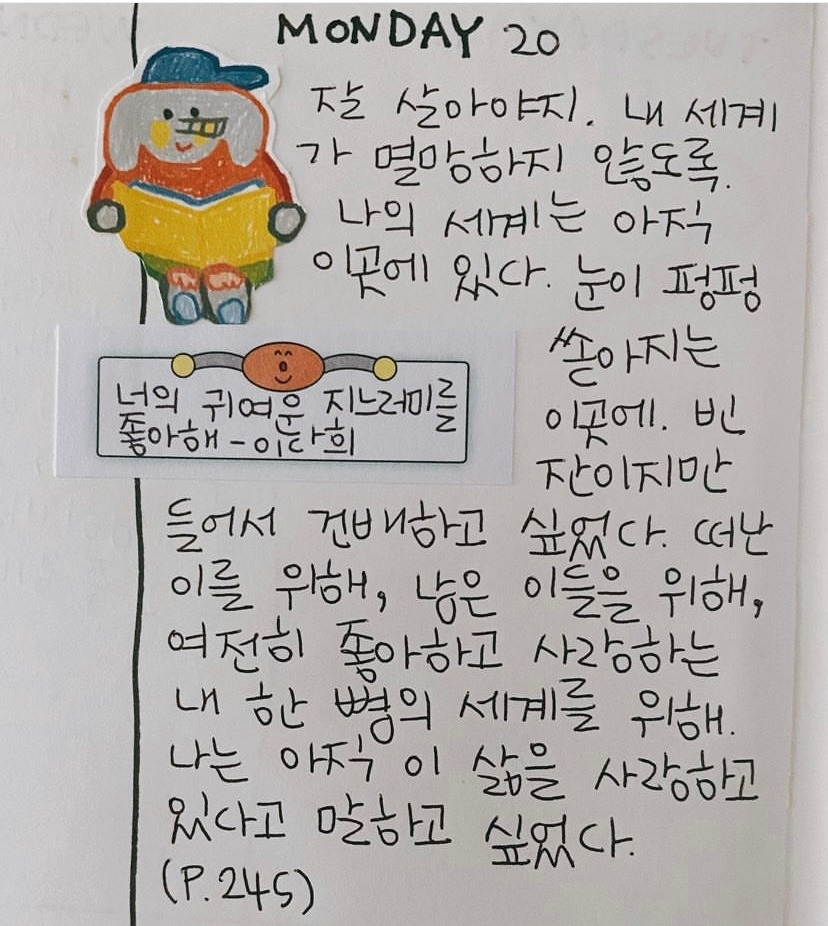 MONDAY 20
잘 살아야지. 내 세계
가 멸망하지 않도록.
나의 세계는 아직
이곳에 있다. 눈이 펑펑
쏟아지는
이곳에. 빈
잔이지만
너의 귀여운 지느러미를
좋아해 - 이다희
들어서 건배하고 싶었다. 떠난
이를 위해, 남은 이들을 위해,
여전히 좋아하고 사랑하는
내 한 뼘의 세계를 위해.
나는 아직 이 삶을 사랑하고
있다고 말하고 싶었다.
(P.245)